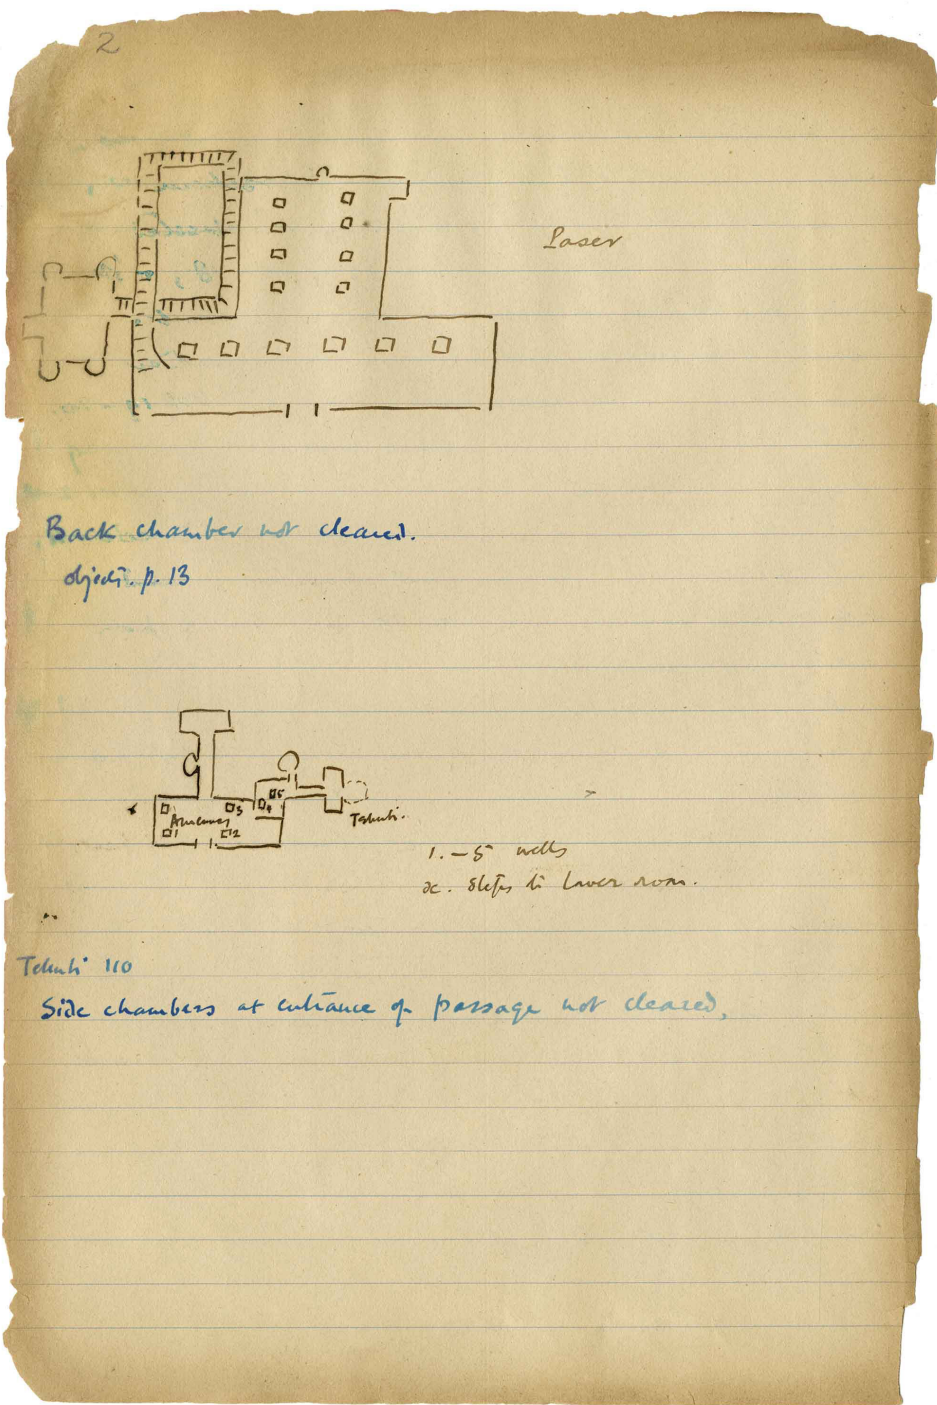 2
Paser
Back chamber not cleared.
objects. p. 13
3
5
4
1
2
Tehuti.
1. – 5 wells
x. Steps to lower room.
Tehuti 110
Side chambers at entrance of passage not cleared,